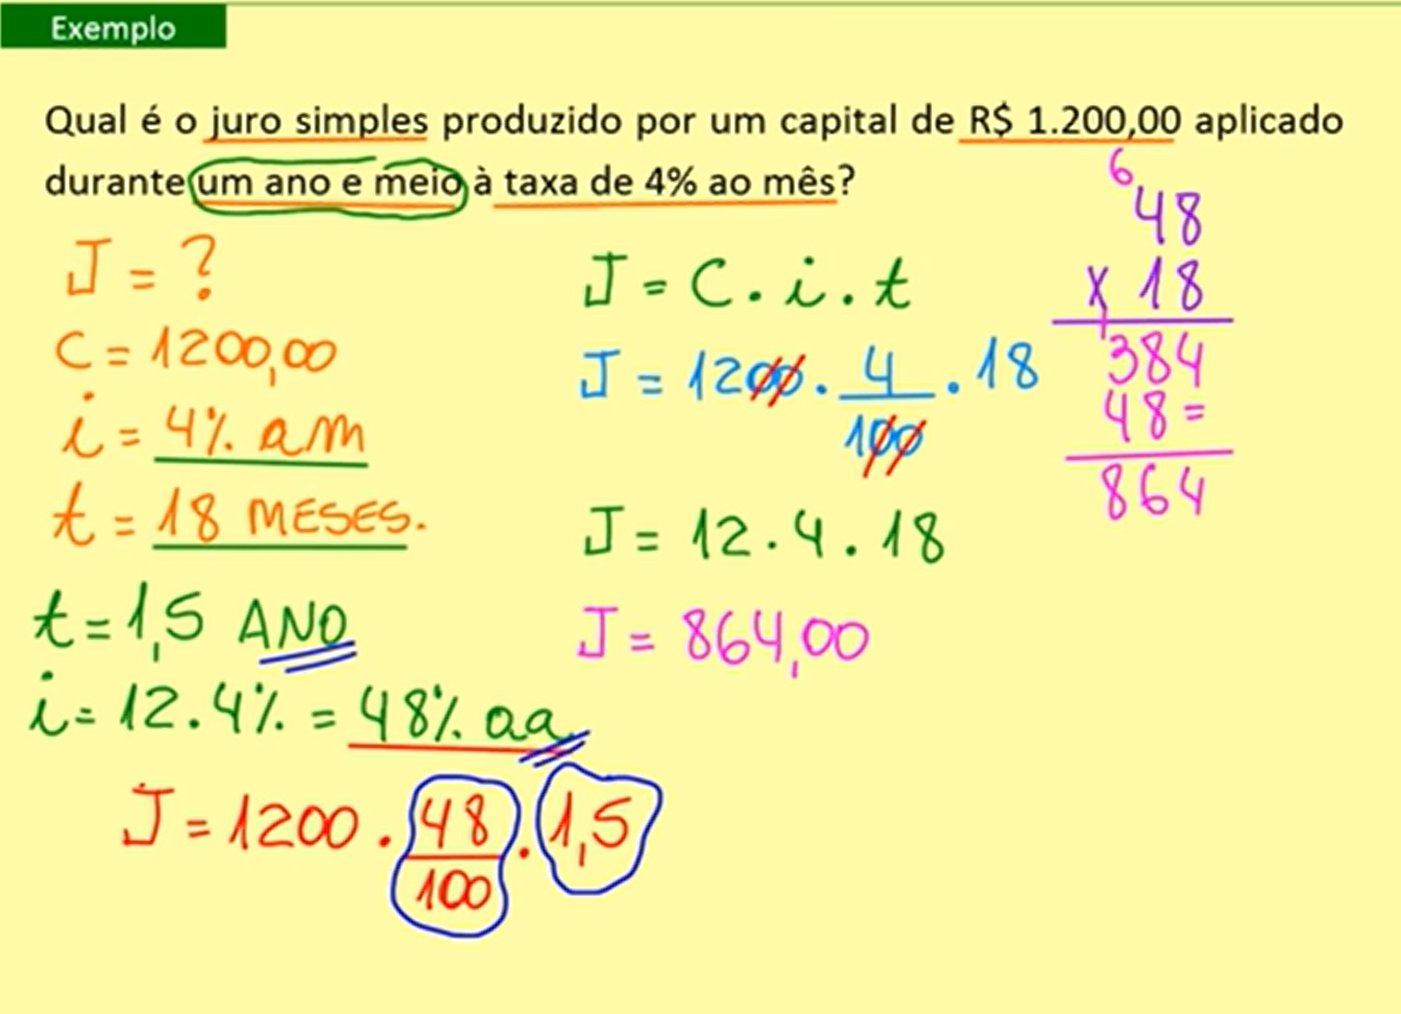 Exemplo
Qual é o juro simples produzido por um capital de R$ 1.200,00 aplicado
durante um ano e meio à taxa de 4% ao mês?
J = ?
C = 1200,00
i = 4% am
t = 18 MESES.
t = 1,5 ANO
i = 12 . 4% = 48% aa
J = 1200 . 48/100 . 1,5
J = C . i . t
J = 1200 . 4/100 . 18
J = 12 . 4 . 18
J = 864,00
6
48
x 18
1
384
48=
864